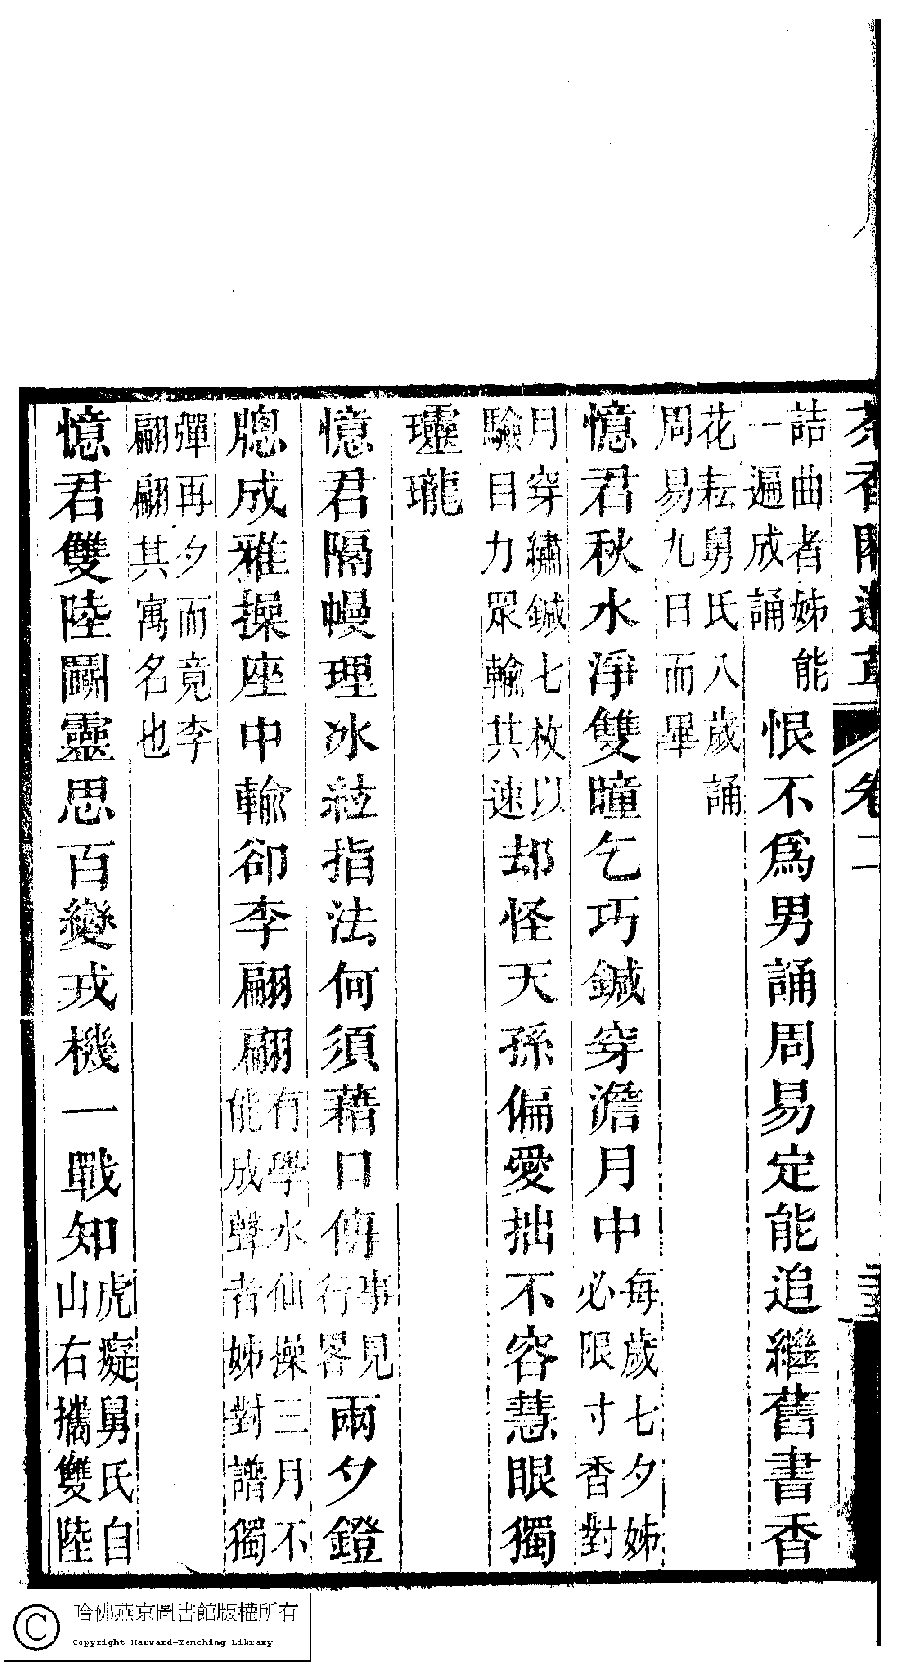 茶香閣遺草 卷二
詰曲者姊能
一遍成誦
恨不爲男誦周易定能追繼舊書香
花耘舅氏八歲誦
周易九日而畢
憶君秋水淨雙瞳乞巧鍼穿澹月中
每歲七夕姊
必限寸香對
月穿繡鍼七枚以
驗目力眾輸其速
却怪天孫偏愛拙不容慧眼獨
瓏
憶君隔幔理冰絃指法何須藉口傳
事見
行畧
兩夕鐙
牕成雅操座中輸卻李翩翩
有學水仙操三月不
能成聲者姊對譜獨
彈再夕而竟李
翩翩其寓名也
憶君雙陸鬭靈思百變戎機一戰知
虎癡舅氏自
山右攜雙陸
哈佛燕京圖書館版權所有
Copyright Harvard-Yenching Library